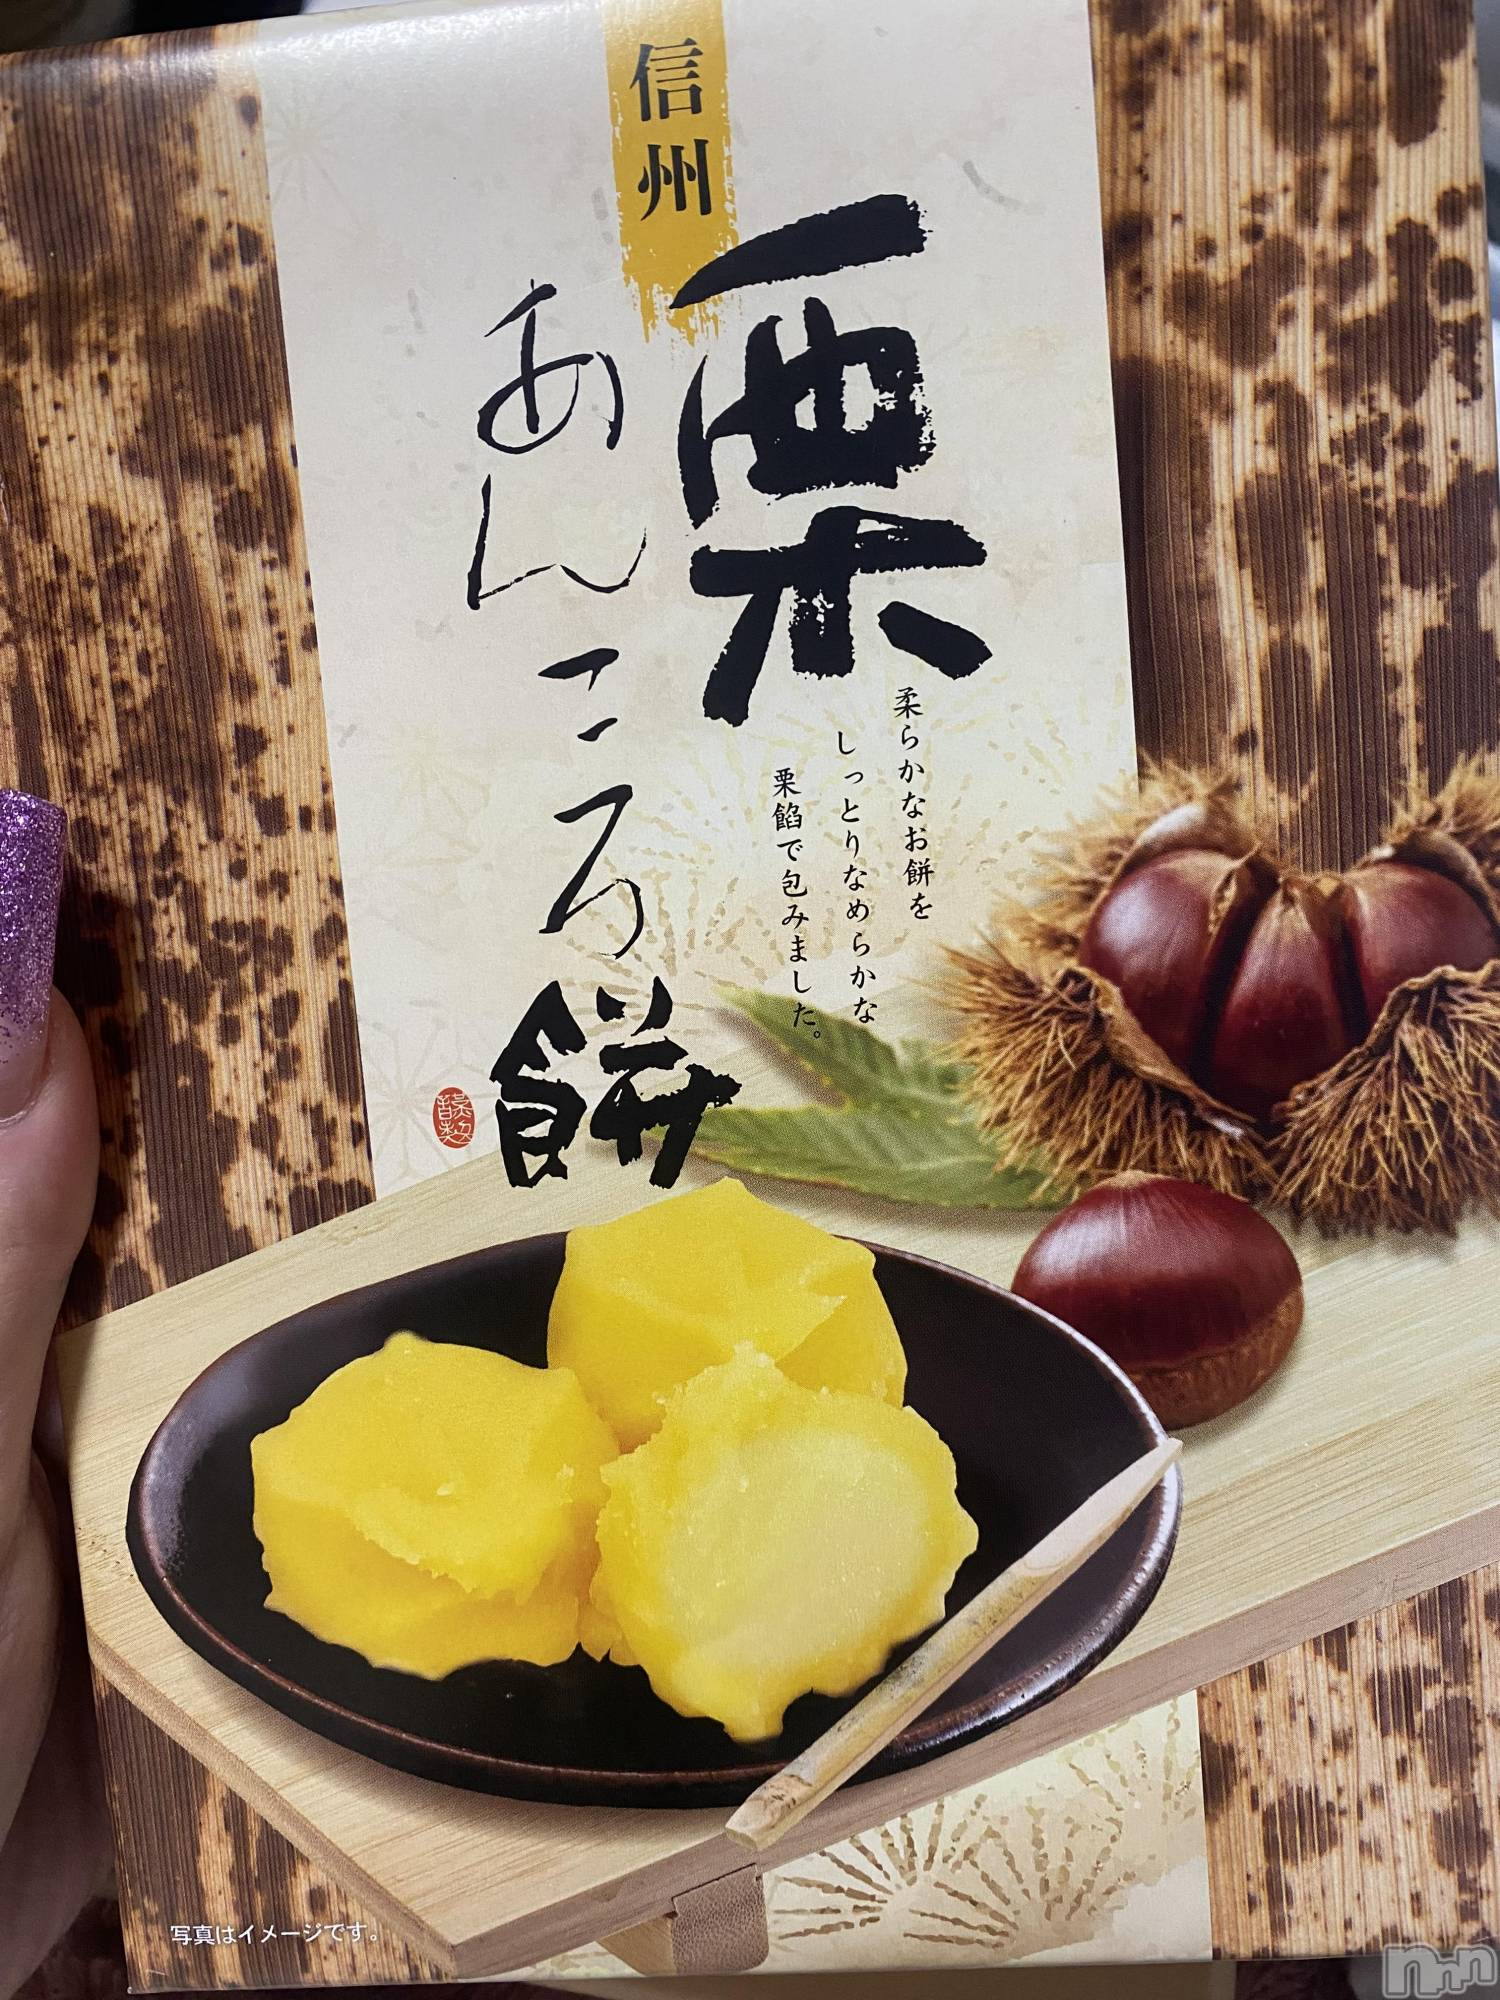 信州
栗
あんころ餅
柔らかなお餅を
しっとりなめらかな
栗餡で包みました。
写真はイメージです。